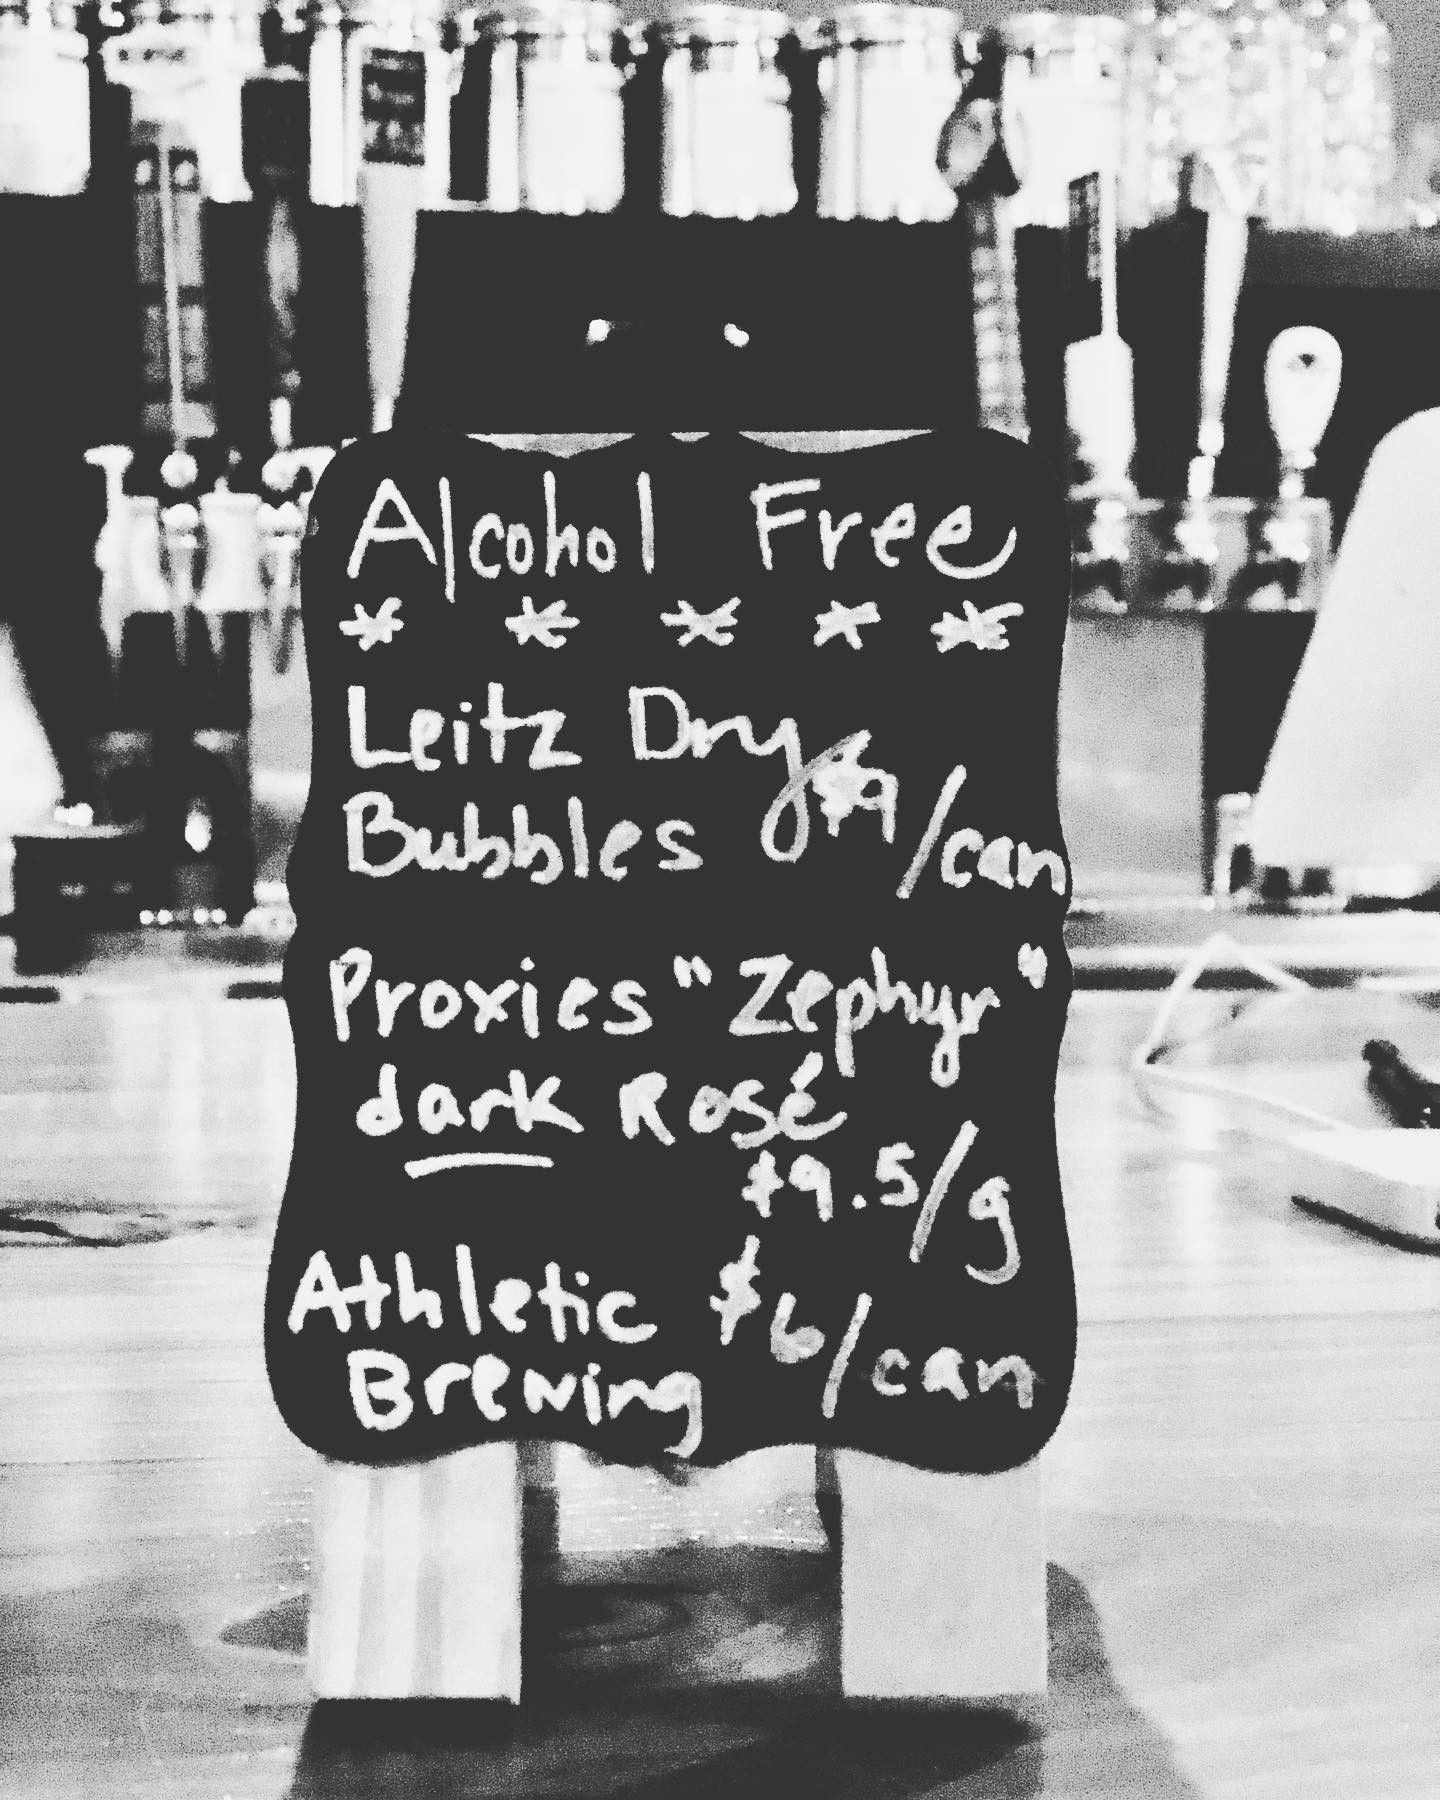 Alcohol Free
* * * * *
Leitz Dry
Bubbles $9/can
Proxies "Zephyr"
dark Rosé
$9.5/g
Athletic $6/can
Brewing